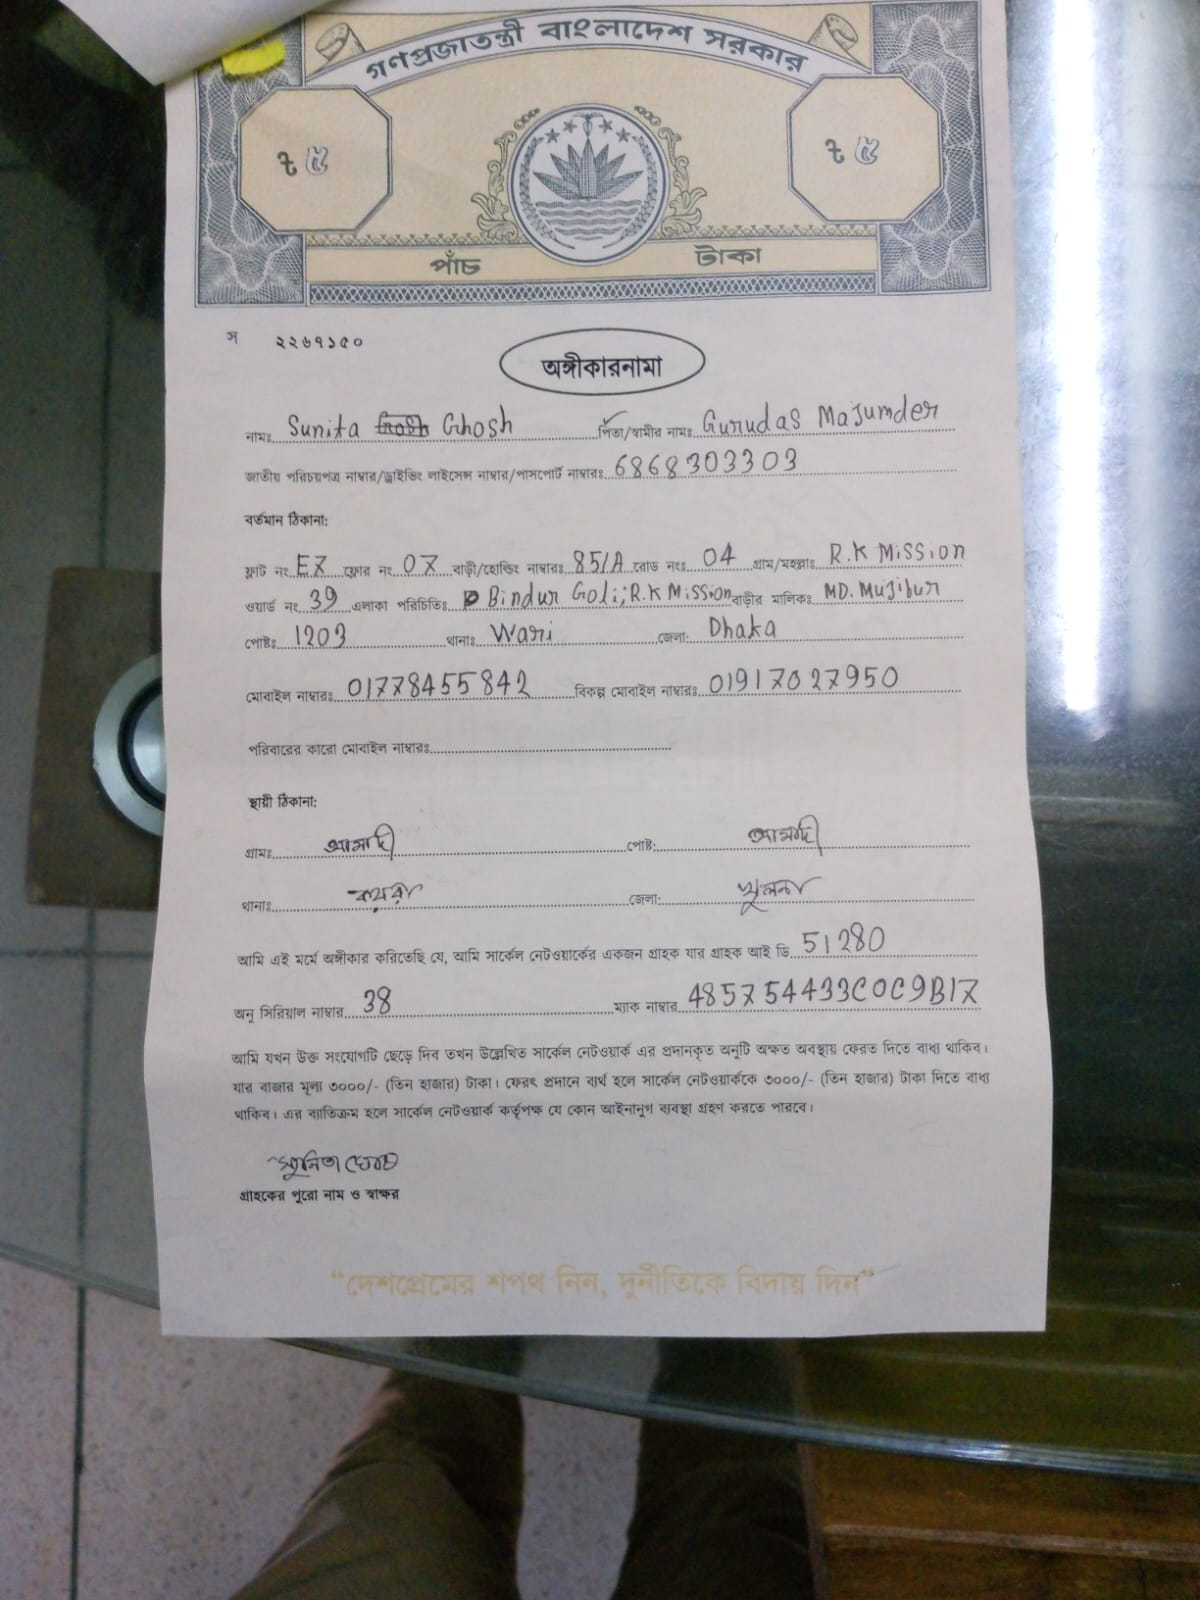 গণপ্রজাতন্ত্রী বাংলাদেশ সরকার
৳ ৫ ৳ ৫
পাঁচ টাকা
স ২২৬৭১৫০
অঙ্গীকারনামা
নামঃ Sunita Ghosh পিতা/স্বামীর নামঃ Gurudas Majumder
জাতীয় পরিচয়পত্র নাম্বার/ড্রাইভিং লাইসেন্স নাম্বার/পাসপোর্ট নাম্বারঃ 6868303303
বর্তমান ঠিকানা:
ফ্লাট নং E7 ফ্লোর নং 07 বাড়ী/হোল্ডিং নাম্বারঃ 85/A রোড নংঃ 04 গ্রাম/মহল্লাঃ R.K Mission
ওয়ার্ড নং 39 এলাকা পরিচিতিঃ Bindur Goli; R.K Mission বাড়ীর মালিকঃ MD. Mujibur
পোষ্টঃ 1203 থানাঃ Wari জেলা: Dhaka
মোবাইল নাম্বারঃ 01778455842 বিকল্প মোবাইল নাম্বারঃ 01917027950
পরিবারের কারো মোবাইল নাম্বারঃ
স্থায়ী ঠিকানা:
গ্রামঃ আমাদী পোষ্ট: আমাদী
থানাঃ কয়রা জেলা: খুলনা
আমি এই মর্মে অঙ্গীকার করিতেছি যে, আমি সার্কেল নেটওয়ার্কের একজন গ্রাহক যার গ্রাহক আই ডি 51280
অনু সিরিয়াল নাম্বার 38 ম্যাক নাম্বার 485754433C0C9B17
আমি যখন উক্ত সংযোগটি ছেড়ে দিব তখন উল্লেখিত সার্কেল নেটওয়ার্ক এর প্রদানকৃত অনুটি অক্ষত অবস্থায় ফেরত দিতে বাধ্য থাকিব।
যার বাজার মূল্য ৩০০০/- (তিন হাজার) টাকা। ফেরৎ প্রদানে ব্যর্থ হলে সার্কেল নেটওয়ার্ককে ৩০০০/- (তিন হাজার) টাকা দিতে বাধ্য
থাকিব। এর ব্যতিক্রম হলে সার্কেল নেটওয়ার্ক কর্তৃপক্ষ যে কোন আইনানুগ ব্যবস্থা গ্রহণ করতে পারবে।
সুনিতা ঘোষ
গ্রাহকের পুরো নাম ও স্বাক্ষর
“দেশপ্রেমের শপথ নিন, দুর্নীতিকে বিদায় দিন”